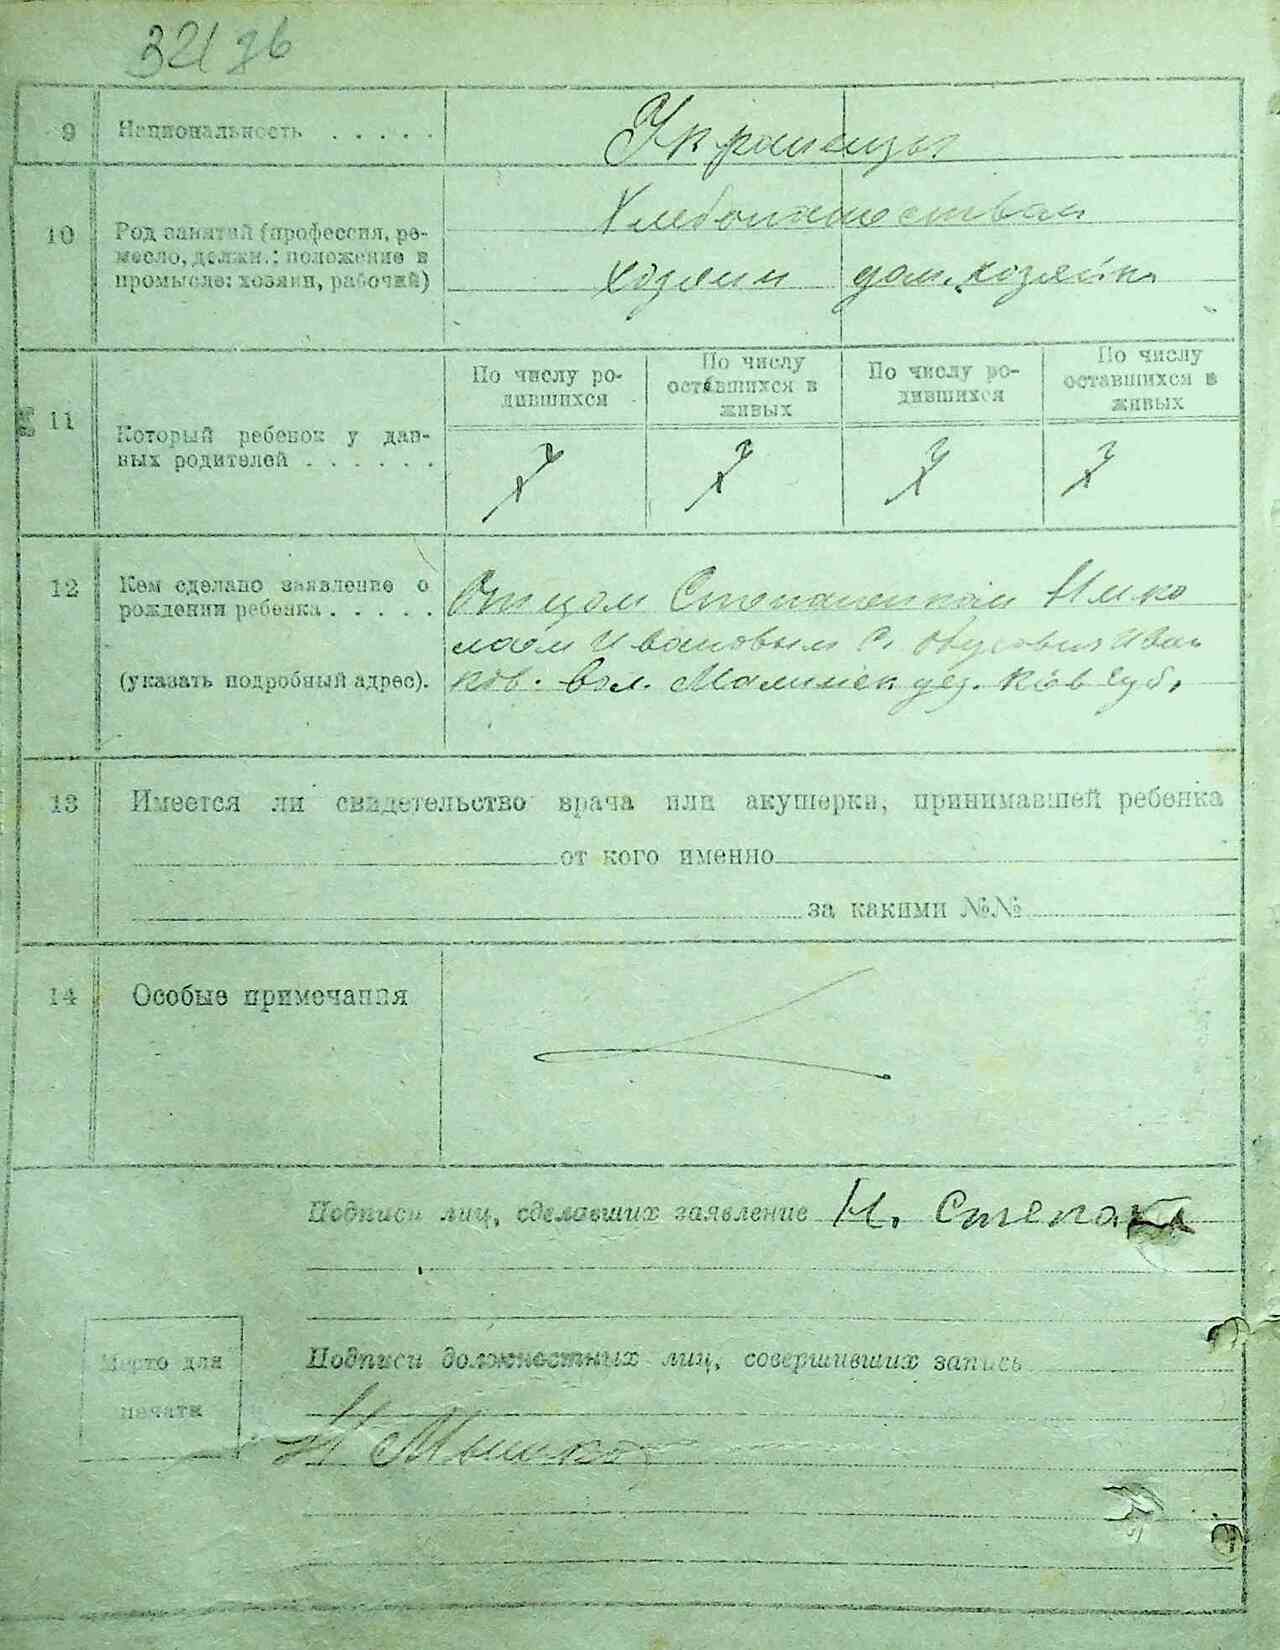 9 Национальность . . . . . Украинцы
10 Род занятий (профессия, ре-
месло, должн.: положение в
промысле: хозяин, рабочий)
Хлебопашеством
хозяин дом. хозяйка
11 Который ребенок у дан-
ных родителей . . . . . .
По числу ро-
дившихся
По числу
оставшихся в
живых
По числу ро-
дившихся
По числу
оставшихся в
живых
12 Кем сделано заявление о
рождении ребенка . . . . .
(указать подробный адрес).
Отцом Степаненком Нико
лаем Ивановым с. Иван
ков. вол. Малинск уез. Киев губ.
13 Имеется ли свидетельство врача или акушерки, принимавшей ребенка
от кого именно
за какими №№
14 Особые примечания
Подписи лиц, сделавших заявление Н. Степан
Подписи должностных лиц, совершивших запись
Место для
печати